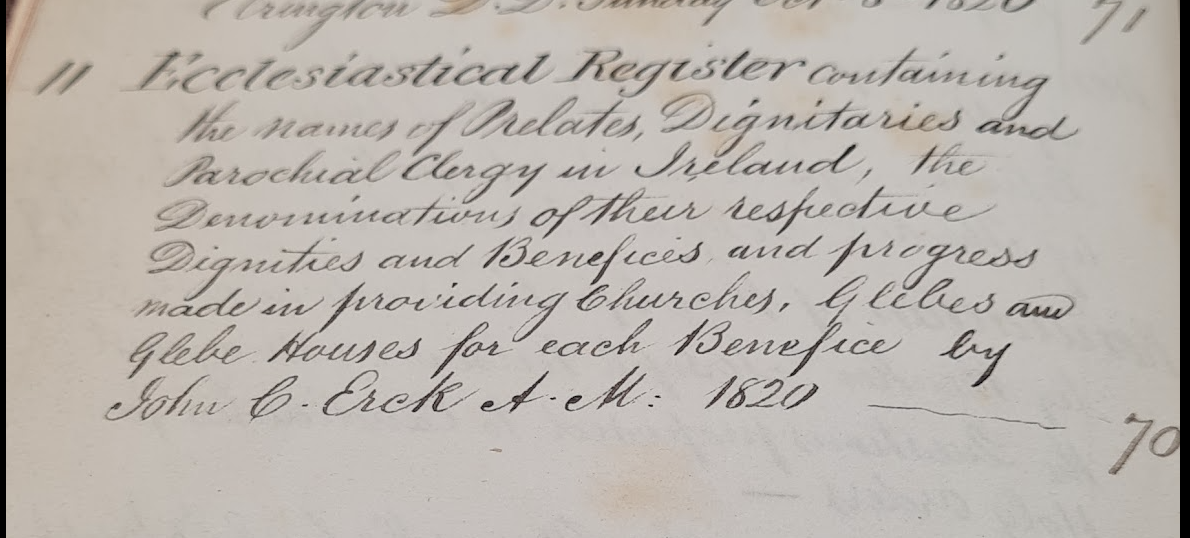 Errington D.D. Sunday Oct 8 1820 71
11 Ecclesiastical Register containing
the names of Prelates, Dignitaries and
Parochial Clergy in Ireland, the
Denominations of their respective
Dignities and Benefices and progress
made in providing Churches, Glebes and
Glebe Houses for each Benefice by
John C. Erck A. M: 1820
70